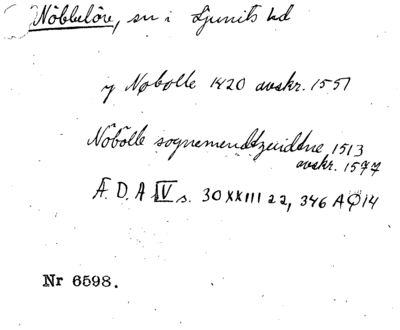 Nöbbelöv, sn i Ljunits hd
y Nobolle 1420 avskr. 1551
Nöbölle sognemendtzuidtne 1513
avskr. 1577
Ä. D. A IV s. 30 XXIII 22, 346 AQ 14
Nr 6598.